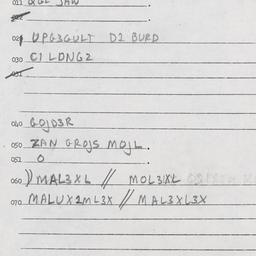 011 QGL JAW .
021 UPG3GULT D2 BURD
030 C1 LDNG2
031
040 GOJD3R
050 ZAN GROJS MOJL .
051 O .
060 MAL3XL // MOL3XL
070 MALUX2ML3X // MAL3XL3X